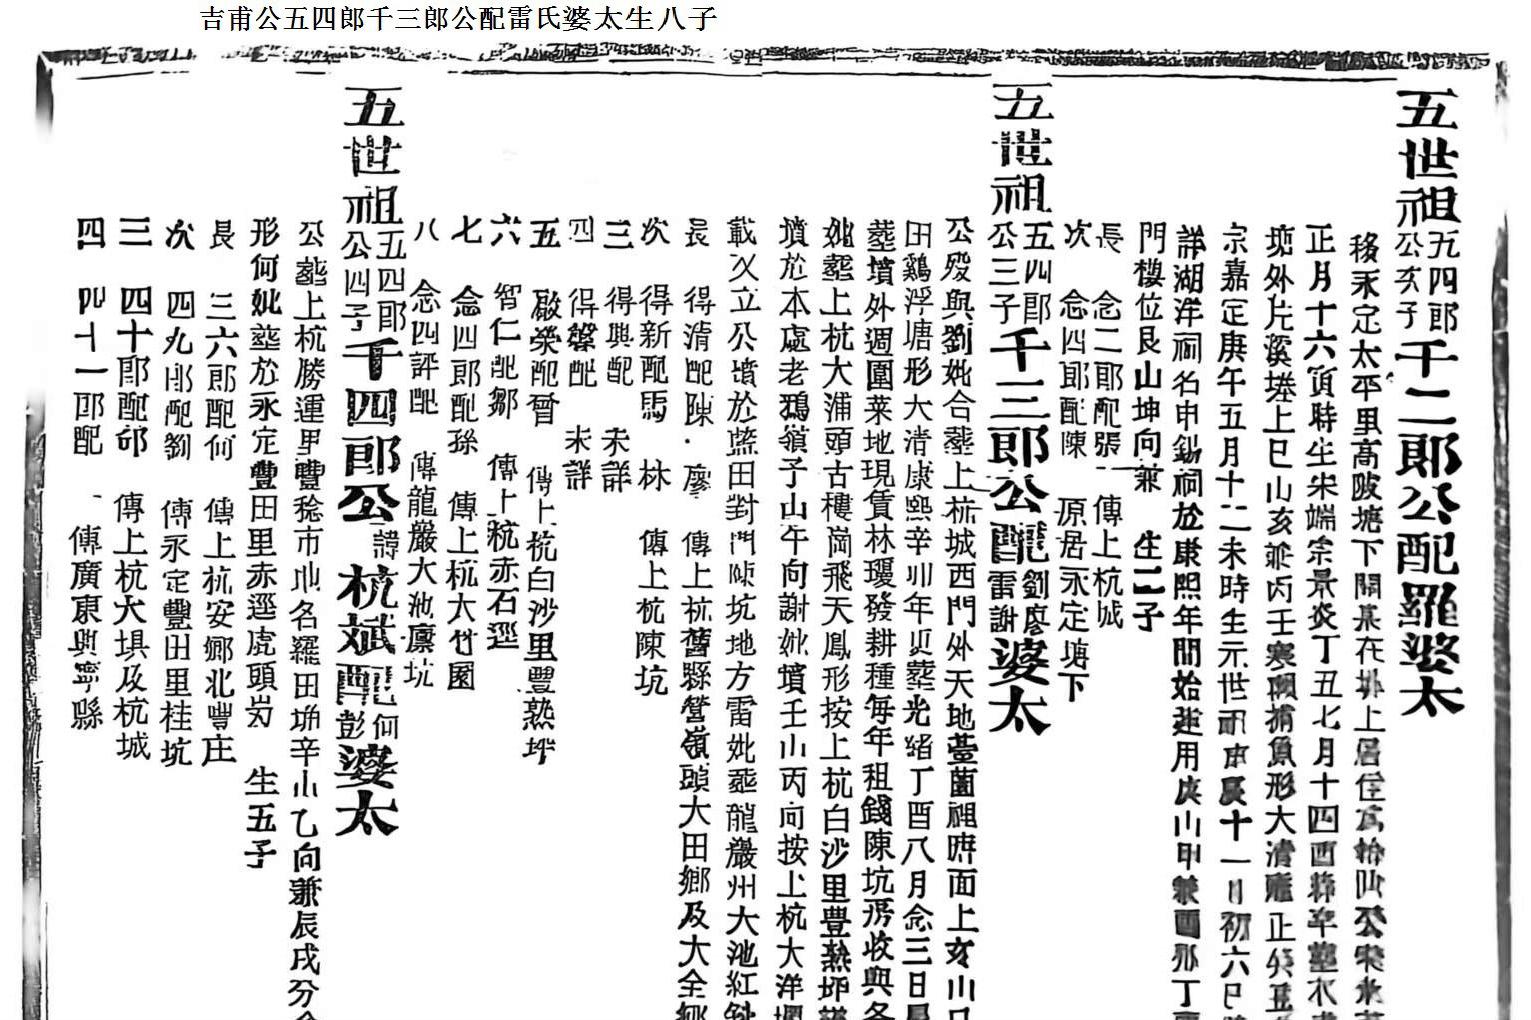 吉甫公五四郎千三郎公配雷氏婆太生八子
五世祖五四郎公次子千二郎公配羅婆太
移永定太平里高陂塘下開基在
正月十六寅時生宋端宗景炎丁丑七月十四酉
塘外片溪墘上巳山亥兼丙壬寒
宗嘉定庚午五月十二未時生元世祖
詳湖洋祠名申錫祠於康熙年間始建用庚山甲兼酉
門樓位艮山坤向兼 生二子
長 念二郎配張 傳上杭城
次 念四郎配陳 原居永定塘下
五世祖五四郎公三子千三郎公配劉廖雷謝婆太
公歿與劉妣合塟上杭城西門外天地臺薗祖
田鷄浮塘形大清康熙辛卯年 塟光緒丁酉八月念三日
塟墳外週圍菜地現賃林瓊發耕種每年租錢陳坑房收與各
妣塟上杭大浦頭古樓崗飛天鳳形按上杭白沙里豊熱坪
墳於本處老鴉嶺子山午向謝妣墳壬山丙向按上杭大洋
載欠立公墳於藍田對門陳坑地方雷妣塟龍巖州大池紅
長 得清配陳廖 傳上杭舊縣營嶺頭大田鄉及大全鄉
次 得新配馬林 傳上杭陳坑
三 得興配 未詳
四 得磐配 未詳
五 啟榮配 傳上杭白沙里豐熟坪
六 智仁配鄒 傳上杭赤石逕
七 念四郎配孫 傳上杭大竹園
八 念四評配 傳龍巖大池廩坑
五世祖五四郎公四子千四郎公諱杭斌配何彭婆太
公塟上杭勝運里豐稔市地名羅田 辛山乙向兼辰戌分金
形何妣塟於永定豐田里赤逕虎頭 生五子
長 三六郎配何 傳上杭安鄉北豐庄
次 四九郎配劉 傳永定豐田里桂坑
三 四十郎配邱 傳上杭大埧及杭城
四 四十一郎配 傳廣東興寧縣